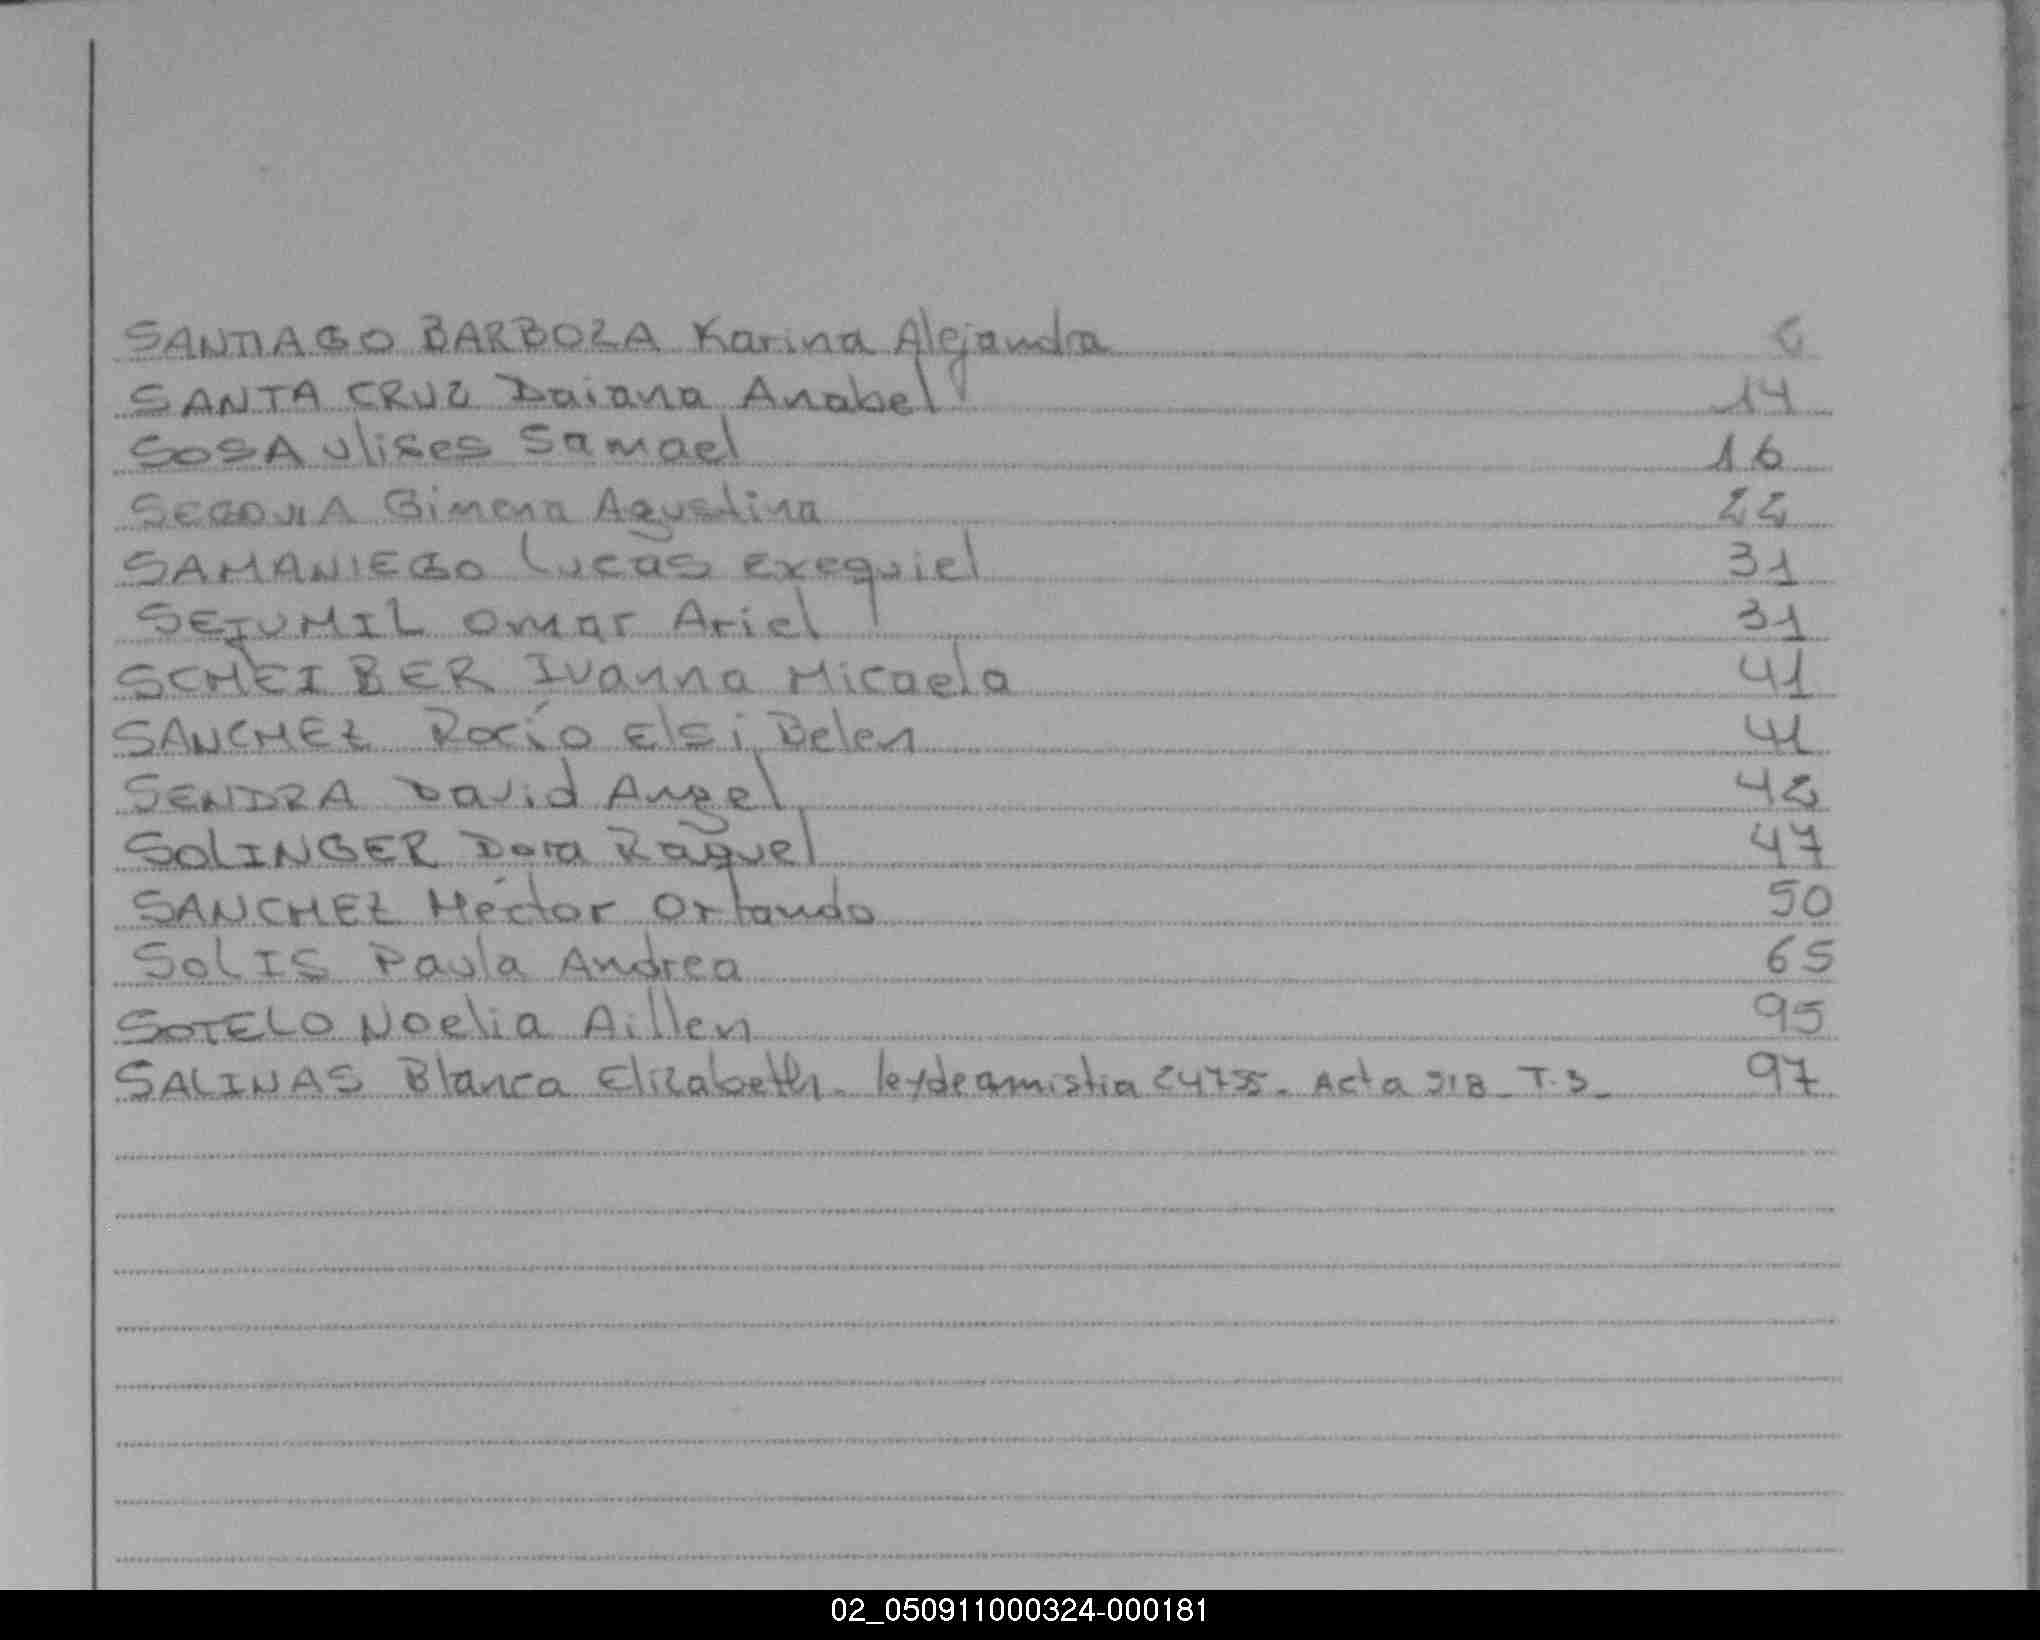 SANTIAGO BARBOZA Karina Alejandra 6
SANTA CRUZ Daiana Anabel 14
SOSA Ulises Samael 16
SEGOVIA Gimena Agustina 22
SAMANIEGO Lucas Exequiel 31
SEJUMIL Omar Ariel 31
SCHEIBER Ivanna Micaela 41
SANCHEZ Rocío Elsi Belen 41
SENDRA David Angel 42
SOLINGER Dora Raquel 47
SANCHEZ Héctor Orlando 50
SOLIS Paula Andrea 65
SOTELO Noelia Aillen 95
SALINAS Blanca Elizabeth. ley de amistia Acta T.3_ 97
02_050911000324-000181